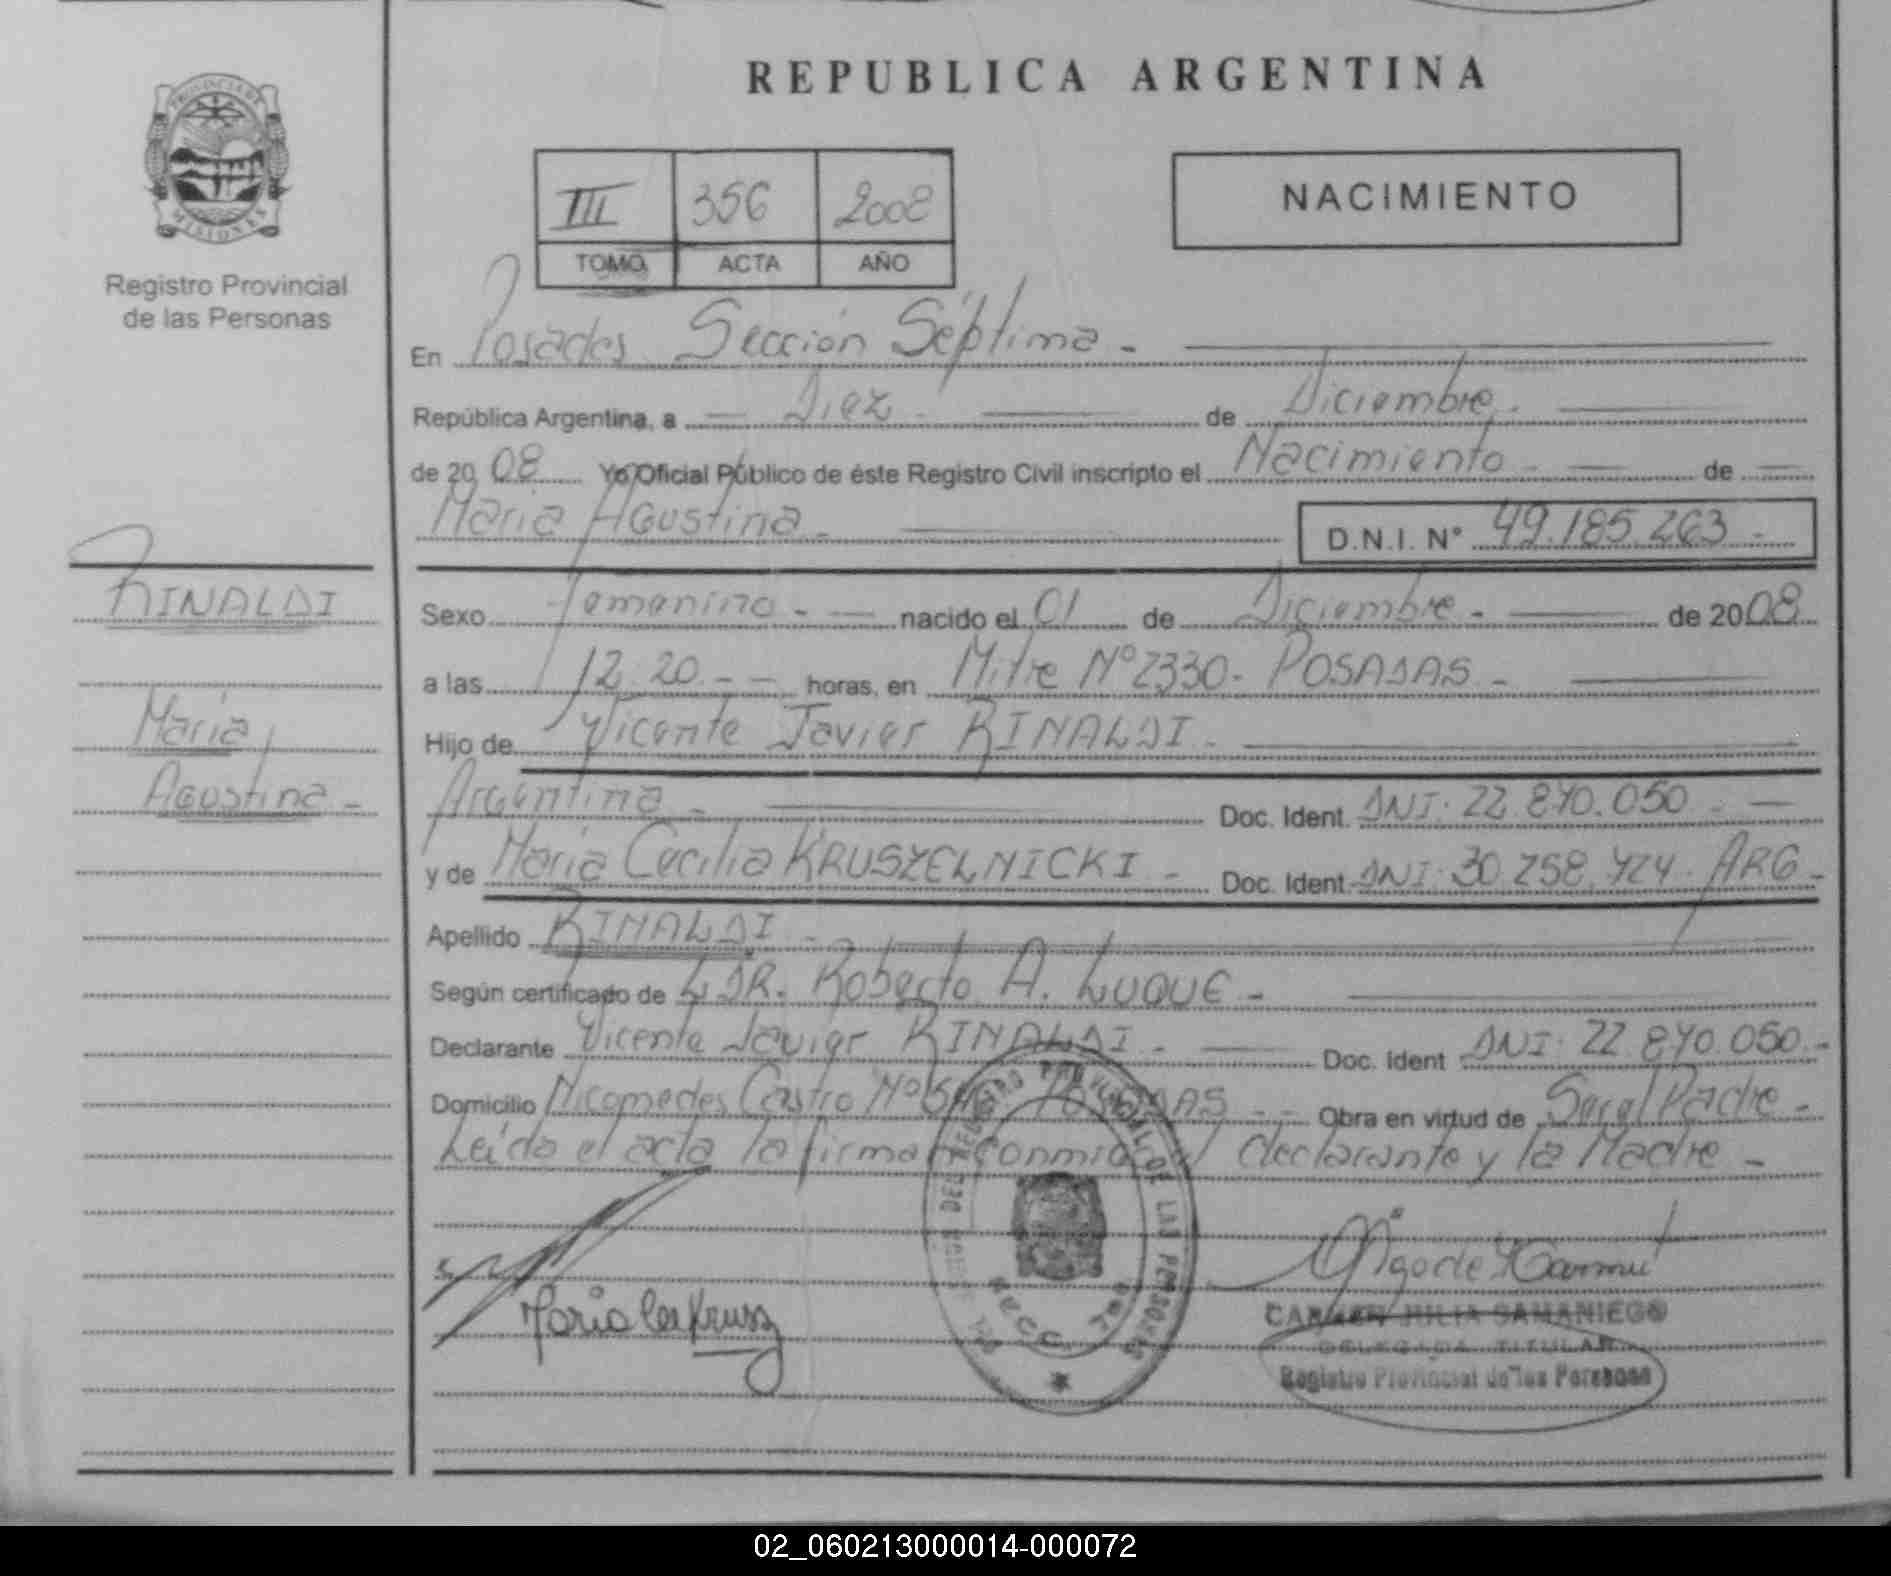 PROVINCIA DE
MISIONES
Registro Provincial
de las Personas
RINALDI
María
Agustina -
REPUBLICA ARGENTINA
III 356 2008
TOMO ACTA AÑO
NACIMIENTO
En Posadas Sección Séptima -
República Argentina, a Diez - de Diciembre -
de 20 08 Yo Oficial Público de éste Registro Civil inscripto el Nacimiento - de
María Agustina - D.N.I. N° 49.185.263 -
Sexo Femenino - nacido el 01 de Diciembre - de 2008
a las 12.20.- - horas, en Mitre Nº 2330- POSADAS -
Hijo de Vicente Javier RINALDI -
Argentina - Doc. Ident. DNI. 22.840.050 -
y de María Cecilia KRUSZELNICKI - Doc. Ident. DNI. 30.258.424. ARG -
Apellido RINALDI -
Según certificado de DR. Roberto A. LUQUE -
Declarante Vicente Javier RINALDI - Doc. Ident DNI. 22.840.050.-
Domicilio Nicomedes Castro Nº POSADAS - - Obra en virtud de Padre -
Leída el acta la firman conmigo el declarante y la Madre -
REGISTRO PROVINCIAL DE LAS PERSONAS
SECC. 7MA
CARMEN JULIA SAMANIEGO
DELEGADA TITULAR
Registro Provincial de las Personas
02_060213000014-000072